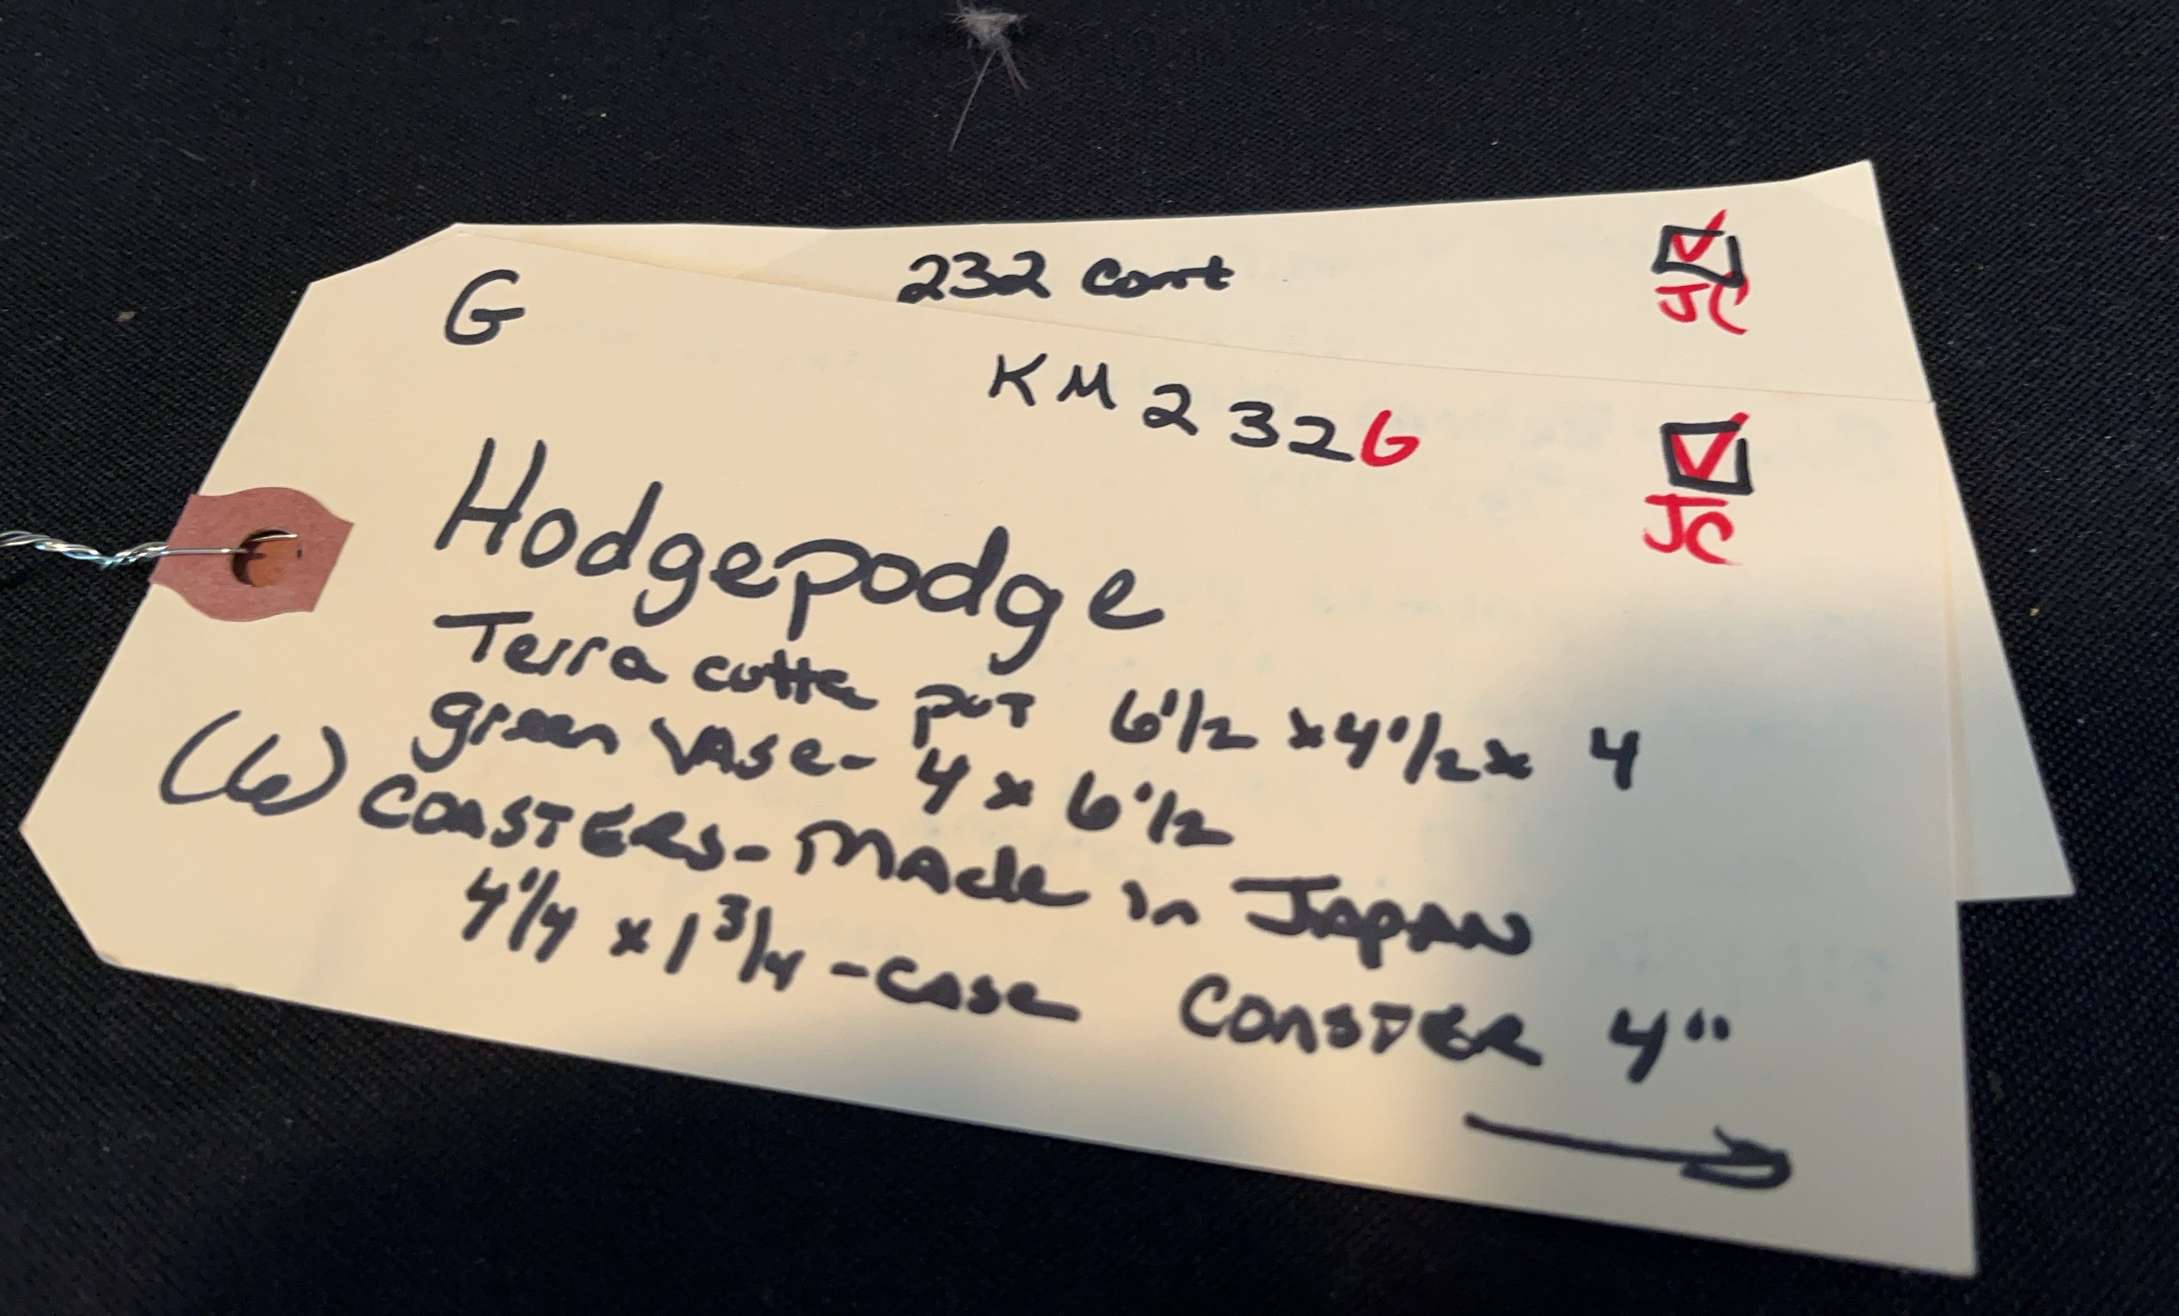 232 cont
JC
G
KM232G
JC
Hodgepodge
Terra cotta pot 6 1/2 x 4 1/2 x 4
green VASe- 4 x 6 1/2
(6) COASTERS- MAde in JAPAN
4 1/4 x 1 3/4 - CASe COASTER 4"